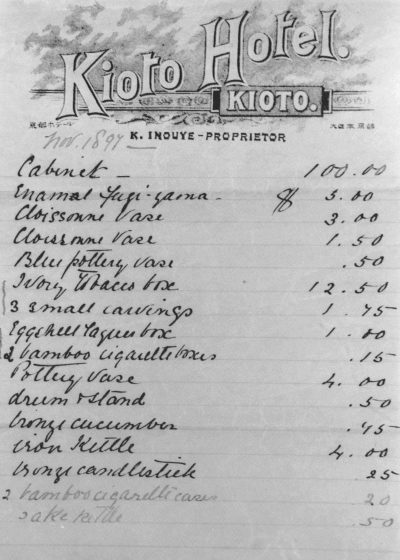 Kioto Hotel.
KIOTO.
京都ホテル
K. INOUYE-PROPRIETOR
Nov. 1897 —
Cabinet — 100.00
Enamel Fugi-yama - $ 3.00
Cloissonne Vase 3.00
Cloissonne Vase 1.50
Blue pottery vase .50
Ivory Tobacco box 12.50
3 small carvings 1.75
Eggshell Laquer box 1.00
2 bamboo cigarette boxes .15
Pottery Vase 4.00
drum & stand .50
bronze cucumber .75
iron Kettle 4.00
bronze candlestick 25
2 bamboo cigarette cases 20
sake kettle .50